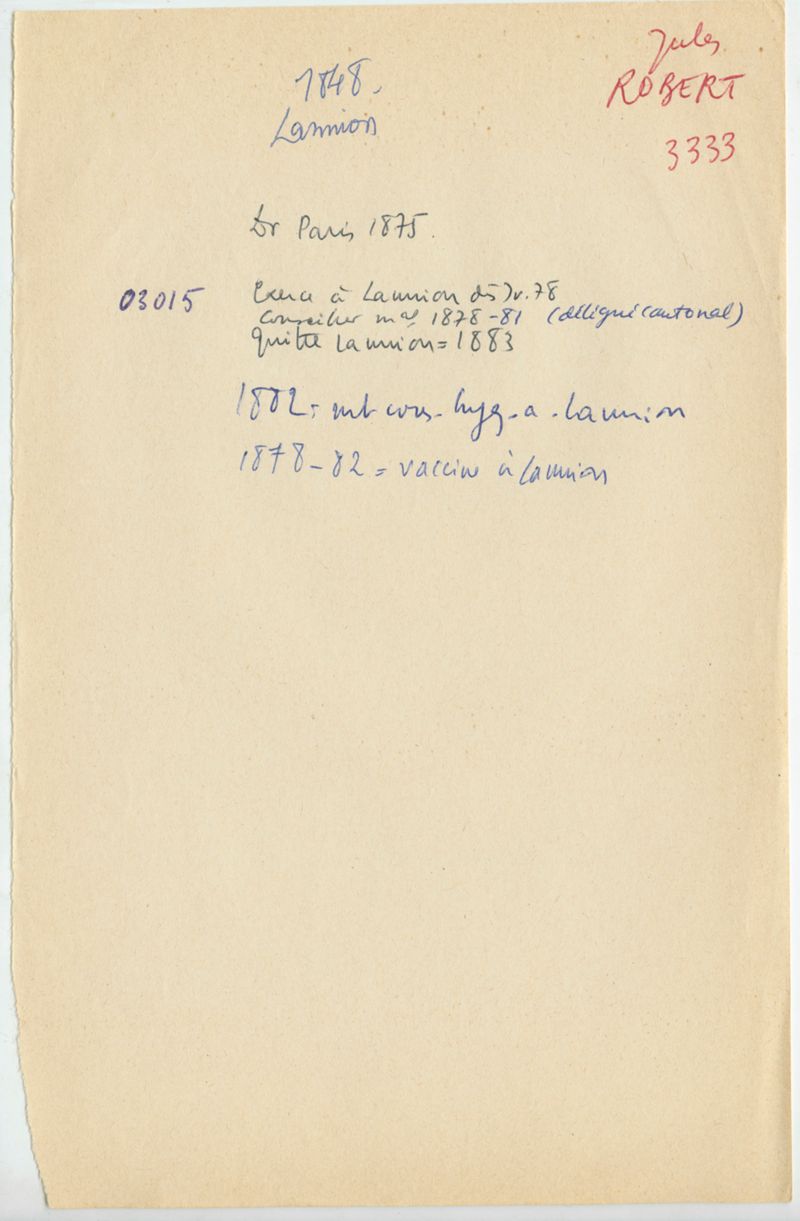 Jules
ROBERT
3333
1848.
Lannion
Dr Paris 1875.
03015
Exerce à Lannion dès Jv. 78
Conseiller mal 1878-81 (délégué cantonal)
Quitte Lannion = 1883
1882 = mb cons. hyg. a. Lannion
1878-82 = vaccine à Lannion